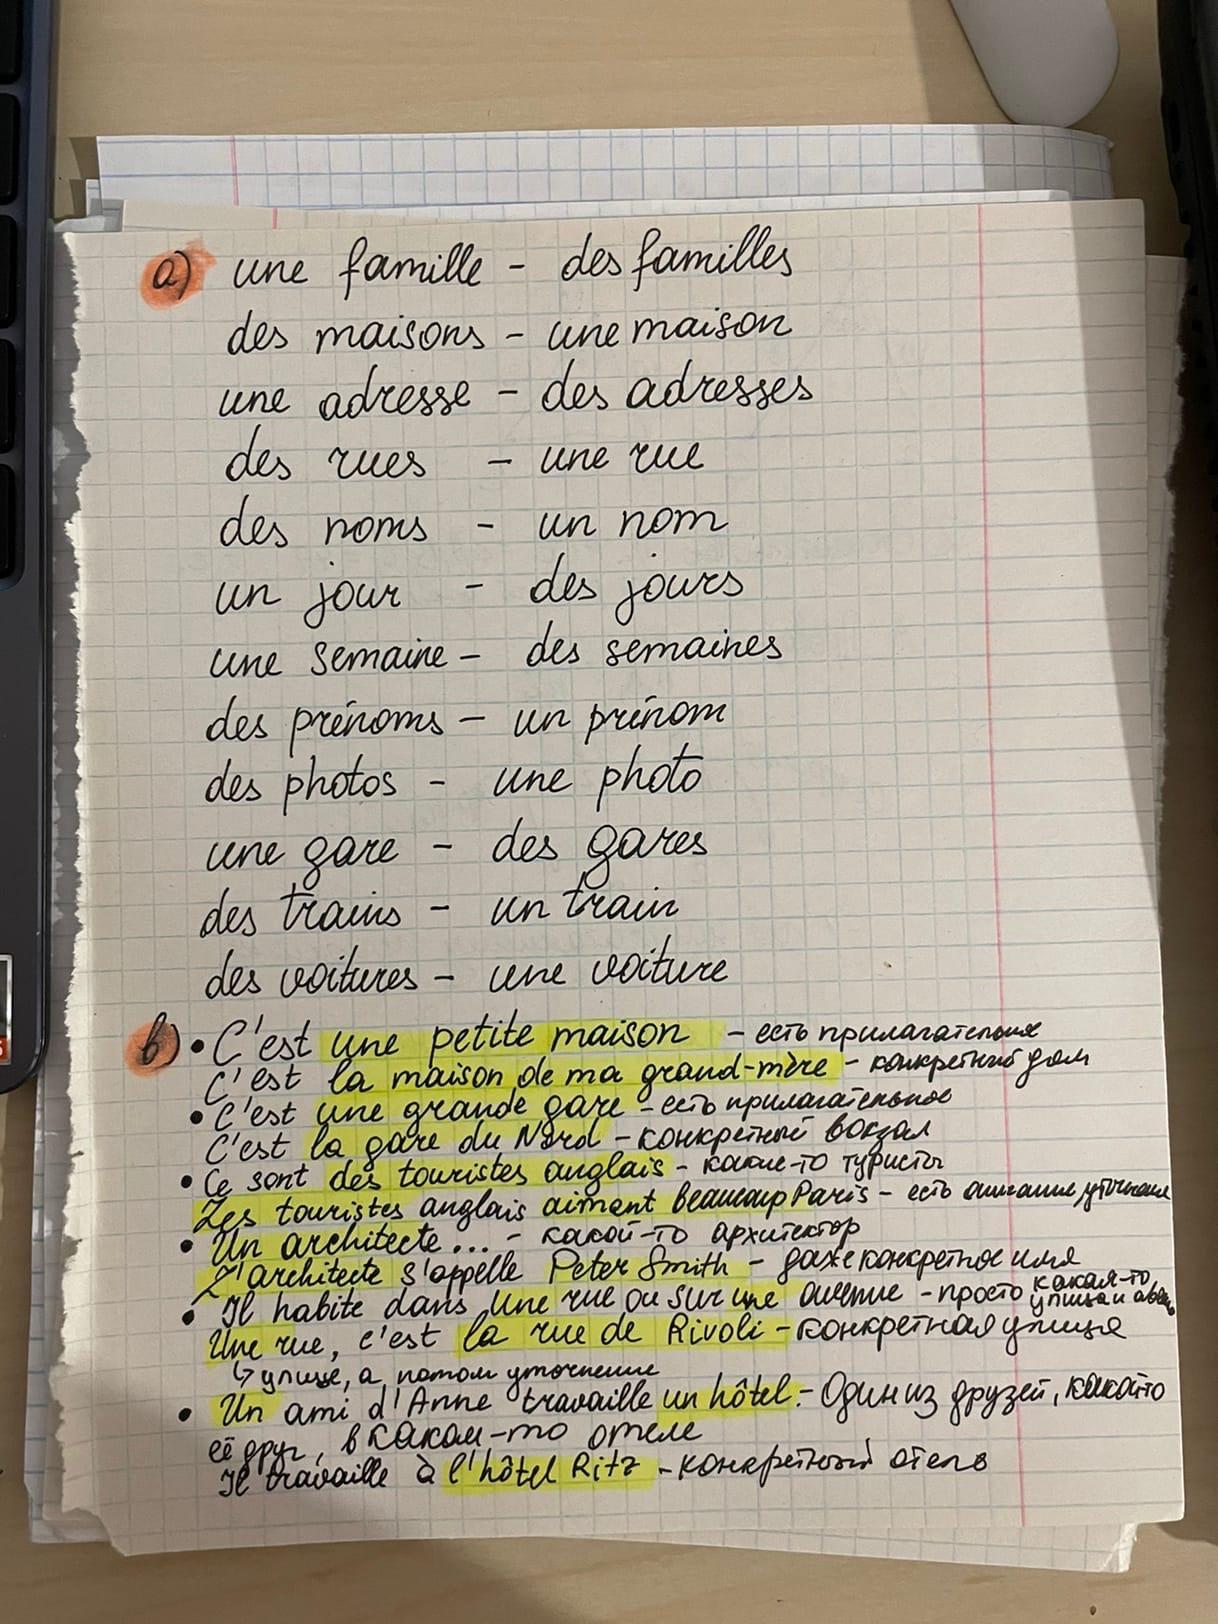 a) une famille - des familles
des maisons - une maison
une adresse - des adresses
des rues - une rue
des noms - un nom
un jour - des jours
une semaine - des semaines
des prénoms - un prénom
des photos - une photo
une gare - des gares
des trains - un train
des voitures - une voiture
b) • C'est une petite maison - есть прилагательное
C'est la maison de ma grand-mère - конкретный дом
• C'est une grande gare - есть прилагательное
C'est la gare du Nord - конкретный вокзал
• Ce sont des touristes anglais - какие-то туристы
Les touristes anglais aiment beaucoup Paris - есть описание, уточнение
• Un architecte... - какой-то архитектор
L'architecte s'appelle Peter Smith - даже конкретное имя
• Il habite dans une rue ou sur une avenue - просто какая-то улица и авеню
Une rue, c'est la rue de Rivoli - конкретная улица
↳ улице, а потом уточнение
• Un ami d'Anne travaille un hôtel. - Один из друзей, какой-то
её друг, в каком-то отеле
Il travaille à l'hôtel Ritz - конкретный отель